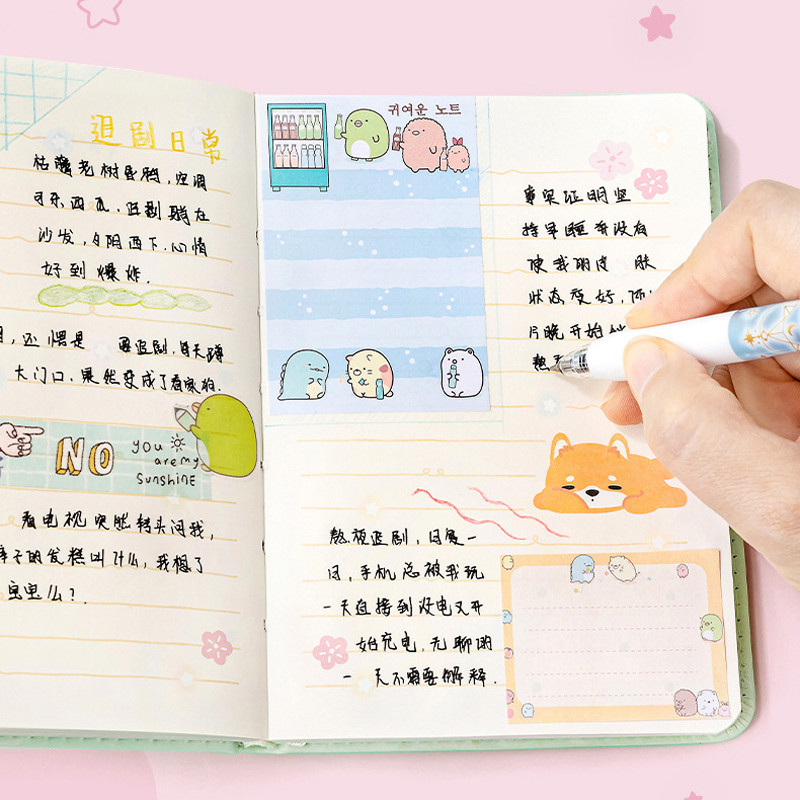 追剧日常
枯藤老树昏鸦,空调
西瓜,追剧躺在
沙发,夕阳西下,心情
好到爆炸.
还惯是 要追剧,每天蹲
大门口,果然变成了看家狗.
NO
you
are my
Sunshine
看电视突然转头问我,
子的发糕叫什么,我想了
宝宝么?
귀여운 노트
事实证明坚
持早睡并没有
使我的皮 肤
状态变好,所以
今晚开始
熬
熬夜追剧,日复一
日,手机总被我玩
一天直接到没电又开
始充电,无聊的
一 天不需要解释.